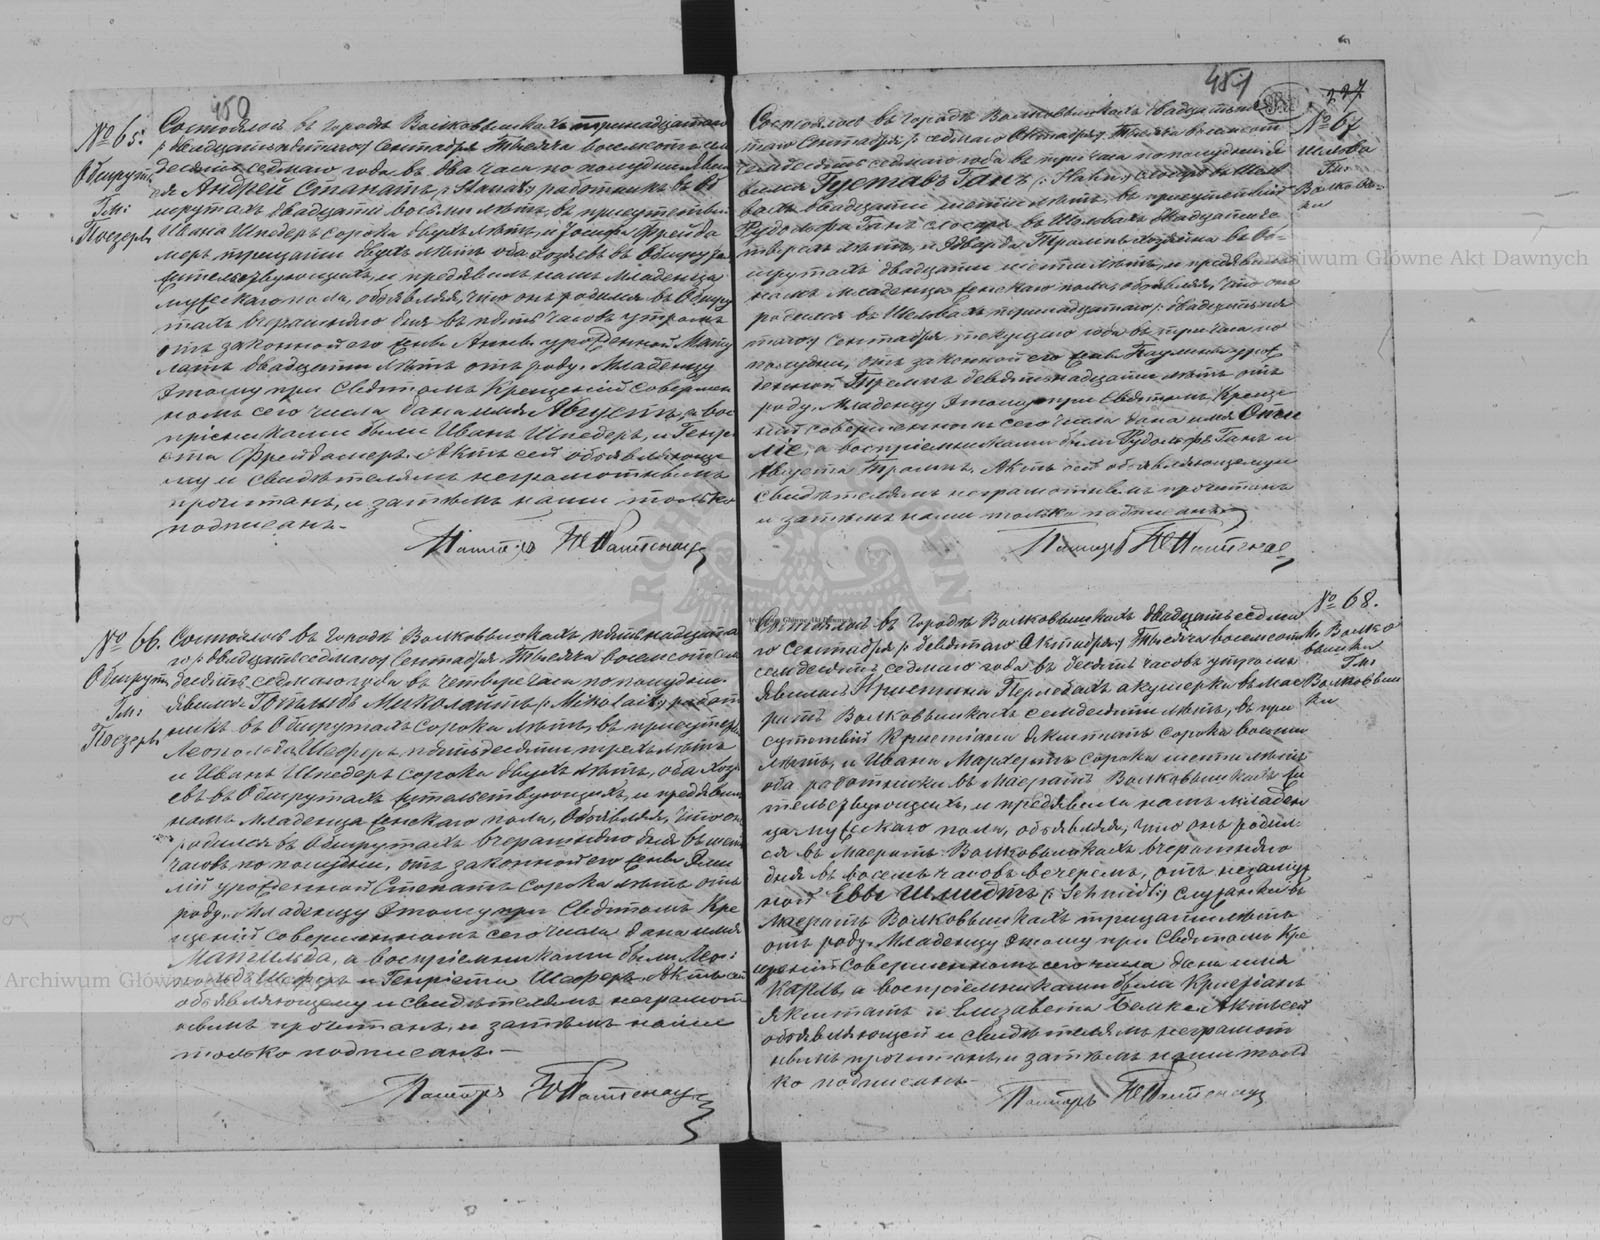 450
№ 65.
Обшруты
Гм:
Поезеры
Состоялось въ городѣ Волковышкахъ тринадцатаго
/: двадцать пятаго:/ Сентября Тысяча восемьсотъ сем
десятъ седьмаго года въ два часа по полудни явил
ся Андрей Станатъ /: Stanat:/ работникъ въ Об
шрутахъ двадцати восьми лѣтъ, въ присутствіи
Ивана Шнедеръ сорока двухъ лѣтъ, и Іосифа Фрейда
меръ тридцати двухъ лѣтъ оба хозяевъ въ Обшрутахъ
жительствующихъ, и предъявилъ намъ младенца
мужескаго пола, объявляя, что онъ родился въ Обшру
тахъ вчерашняго дня въ пять часовъ утромъ
отъ законной его жены Анны урожденной Мату
латъ двадцати лѣтъ отъ роду. Младенцу
этому при Святомъ Крещеніи совершен
номъ сего числа дано имя Августъ, а вос
пріемниками были Иванъ Шнедеръ, и Генрі
ета Фрейдамеръ. Актъ сей объявляюще
му и свидѣтелямъ неграмотнымъ
прочитанъ, и затѣмъ нами только
подписанъ.-
Пасторъ
№ 66.
Обшруты
Гм:
Поезеры
Состоялось въ городѣ Волковышкахъ пятьнадцата
го /: двадцать седьмаго:/ Сентября Тысяча восемсотъ сем
десятъ седьмаго года въ четверо часа по полудни.
явился Готлибъ Миколайтъ /: Mikolait:/ работ
никъ въ Обшрутахъ сорока лѣтъ, въ присутствіи
Леопольда Шеферъ, пятьдесяти трехъ лѣтъ
и Иванъ Шнедеръ сорока двухъ лѣтъ, оба хозя
евъ въ Обшрутахъ жительствующихъ, и предъявилъ
намъ младенца женскаго пола, объявляя, что онъ
родился въ Обшрутахъ вчерашняго дня въ шесть
часовъ по полудни, отъ законной его жены Эми
ліи урожденной Степатъ сорока лѣтъ отъ
роду. Младенцу этому при Святомъ Кре
щеніи совершенномъ сего числа дано имя
Матильда, а воспріемниками были Лео-
польдъ Шеферъ и Генріета Шеферъ. Актъ сей
объявляющему и свидѣтелямъ неграмот
нымъ прочитанъ, и затѣмъ нами
только подписанъ.-
Пасторъ
451
227
№ 67
Шельвы
Гм:
Волковы-
шки
Состоялось въ городѣ Волковышкахъ двадцать пя
таго Сентября /: седьмаго Октября:/ Тысяча восемсотъ
семдесятъ седьмаго года въ три часа по полудни я
вился Густавъ Ганъ (: Hahn:) слесаръ въ Шель
вахъ двадцати шести лѣтъ, въ присутствіи
Рудольфа Ганъ слесаръ въ Шельвахъ двадцати че
тырехъ лѣтъ, и Эдварда Тромпъ хозяина въ Об-
шрутахъ двадцати шести лѣтъ, и предъявилъ
намъ младенца женскаго пола, объявляя, что онъ
родился въ Шельвахъ тринадцатаго /: двадцать пя
таго:/ Сентября текущаго года въ три часа по
полудни, отъ законной его жены Паулины урож
денной Тремпъ девятьнадцати лѣтъ отъ
роду. Младенцу этому при Святомъ Креще
ніи совершенномъ сего числа дано имя Оти
ліе, а воспріемниками были Рудольфъ Ганъ и
Августа Тромпъ. Актъ сей объявляющему и
свидѣтелямъ неграмотнымъ прочитанъ
и затѣмъ нами только подписанъ.
Пасторъ
№ 68.
М. Волко
вышки
Гм:
Волковыш
ки
Состоялось въ городѣ Волковышкахъ двадцать седьма
го Сентября /: девятаго Октября:/ Тысяча восемсотъ
семдесятъ седьмаго года въ десять часовъ утромъ
явилась Кристина Перлебахъ акушерка въ Мае
ратъ Волковышкахъ семдесяти лѣтъ, въ при
сутствіи Кристіана Якштатъ сорока восьми
лѣтъ, и Ивана Мархертъ сорока шести лѣтъ
оба работники въ Маератъ Волковышкахъ жи
тельствующихъ, и предъявила намъ младен
ца мужескаго пола, объявляя, что онъ родил-
ся въ Маератъ-Волковышкахъ вчерашняго
дня въ восемь часовъ вечеромъ, отъ незамуж
ной Евы Шмидтъ (: Schmidt:) служанки въ
Маератъ Волковышкахъ тридцати лѣтъ
отъ роду. Младенцу этому при Святомъ Кре
щеніи совершенномъ сего числа дано имя
Карлъ, а воспріемниками были Кристіанъ
Якштатъ и Елизавета Белке. Актъ сей
объявляющей и свидѣтелямъ неграмот
нымъ прочитанъ, и затѣмъ нами толь
ко подписанъ.-
Пасторъ
Archiwum Główne Akt Dawnych
Archiwum Główne Akt Dawnych
Archiwum Główne Akt Dawnych